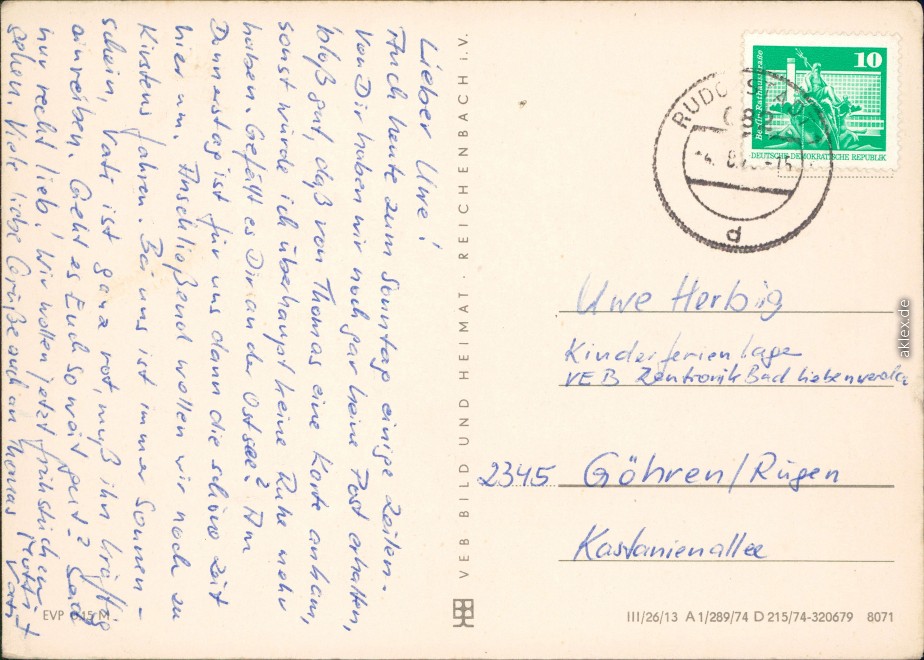 Lieber Uwe!
Auch heute zum Sonntag einige Zeilen.
Von Dir haben wir noch gar keine Post erhalten,
bloß gut, daß von Thomas eine Karte ankam,
sonst würde ich überhaupt keine Ruhe mehr
haben. Gefällt es Dir an der Ostsee? Am
Donnerstag ist für uns dann die schöne Zeit
hier um. Anschließend wollen wir noch zu
Kirstens fahren. Bei uns ist immer Sonnen-
schein, Vati ist ganz rot, muß ihn kräftig
einreiben. Geht es Euch soweit gut? Seid
nur recht lieb! Wir wollen jetzt frühstücken
gehen. Viele liebe Grüße auch an Thomas Mutti +
Vati
VEB BILD UND HEIMAT · REICHENBACH i. V.
EVP 0,15 M
10
Berlin-Rathausstraße
DEUTSCHE DEMOKRATISCHE REPUBLIK
d
Uwe Herbig
Kinderferienlager
VEB Zentronik Bad Liebenwerda
2345 Göhren/Rügen
Kastanienallee
III/26/13 A 1/289/74 D 215/74-320679 8071
aklex.de